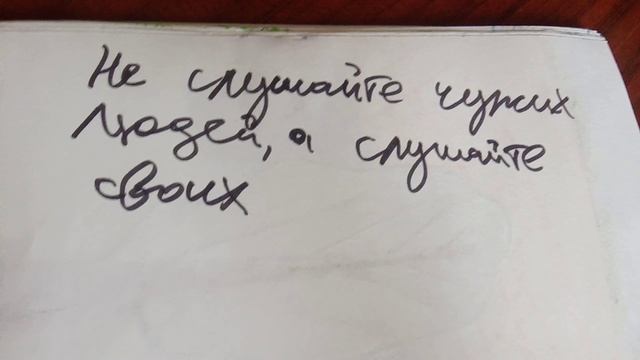 Не слушайте чужих
людей, а слушайте
своих